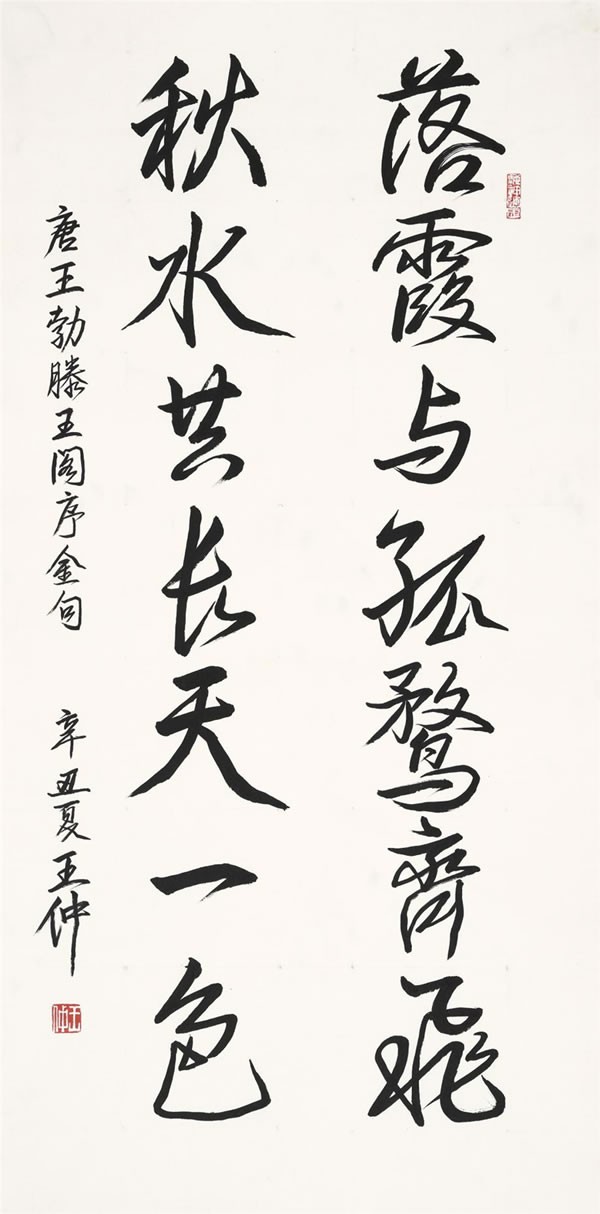 落霞与孤鹜齊飛
秋水共长天一色
唐王勃滕王阁序金句
辛丑夏王仲
王仲